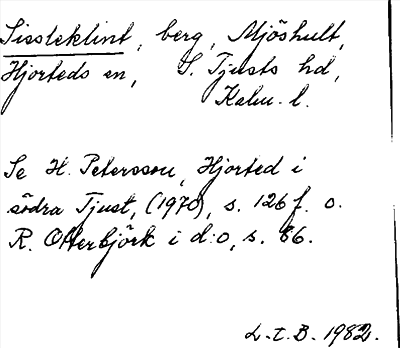 Sissleklint, berg, Mjöshult,
Hjorteds sn, S. Tjusts hd,
Kalm. l.
Se H. Petersson, Hjorted i
södra Tjust, (1970), s. 126 f. o.
R. Otterbjörk i d:o, s. 86.
L.t.B. 1982.